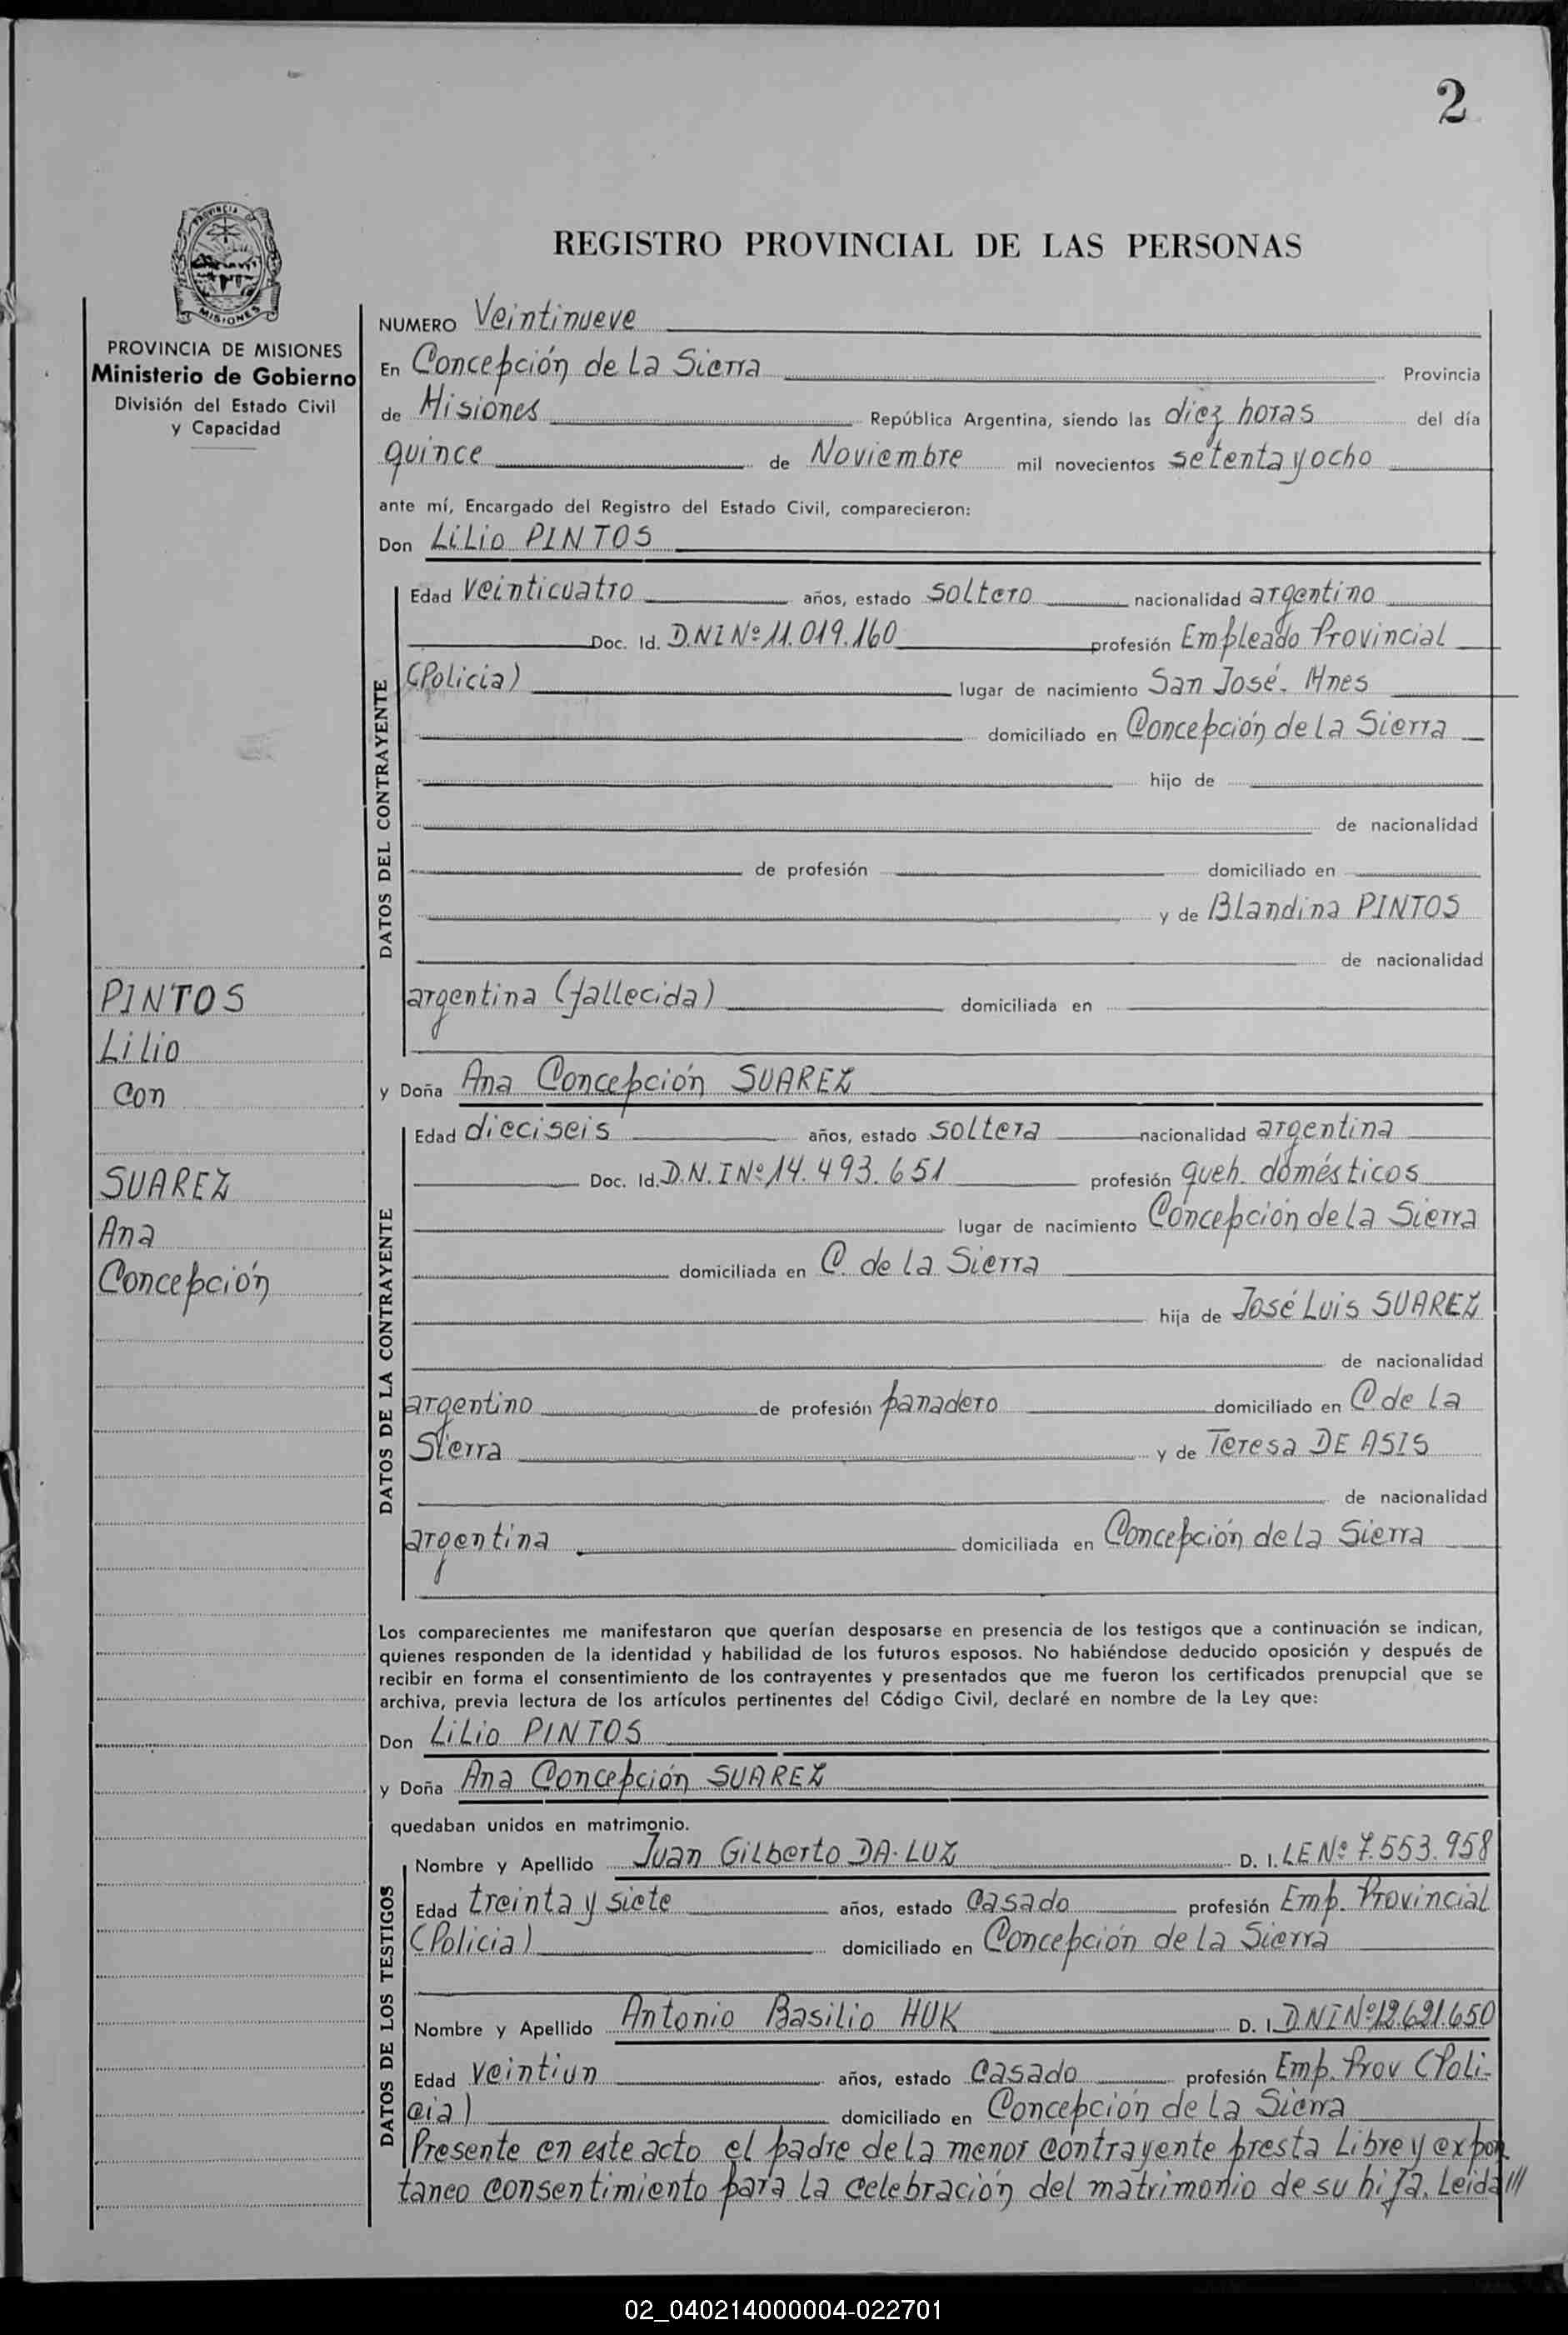 2
PROVINCIA DE
MISIONES
PROVINCIA DE MISIONES
Ministerio de Gobierno
División del Estado Civil
y Capacidad
PINTOS
Lilio
Con
SUAREZ
Ana
Concepción
REGISTRO PROVINCIAL DE LAS PERSONAS
NUMERO Veintinueve
En Concepción de La Sierra Provincia
de Misiones República Argentina, siendo las diez horas del día
quince de Noviembre mil novecientos setenta y ocho
ante mí, Encargado del Registro del Estado Civil, comparecieron:
Don Lilio PINTOS
DATOS DEL CONTRAYENTE
Edad veinticuatro años, estado soltero nacionalidad argentino
Doc. Id. D.N.I Nº 11.019.160 profesión Empleado Provincial
(Policia) lugar de nacimiento San José. Mnes
domiciliado en Concepción de La Sierra
hijo de
de nacionalidad
de profesión domiciliado en
y de Blandina PINTOS
de nacionalidad
argentina (fallecida) domiciliada en
y Doña Ana Concepción SUAREZ
DATOS DE LA CONTRAYENTE
Edad dieciseis años, estado soltera nacionalidad argentina
Doc. Id. D.N.I Nº 14.493.651 profesión queh. domésticos
lugar de nacimiento Concepción de La Sierra
domiciliada en C. de La Sierra
hija de José Luis SUAREZ
de nacionalidad
argentino de profesión panadero domiciliado en C. de La
Sierra y de Teresa DE ASIS
de nacionalidad
argentina domiciliada en Concepción de La Sierra
Los comparecientes me manifestaron que querían desposarse en presencia de los testigos que a continuación se indican,
quienes responden de la identidad y habilidad de los futuros esposos. No habiéndose deducido oposición y después de
recibir en forma el consentimiento de los contrayentes y presentados que me fueron los certificados prenupcial que se
archiva, previa lectura de los artículos pertinentes del Código Civil, declaré en nombre de la Ley que:
Don Lilio PINTOS
y Doña Ana Concepción SUAREZ
quedaban unidos en matrimonio.
DATOS DE LOS TESTIGOS
Nombre y Apellido Juan Gilberto DA-LUZ D. I. LE Nº 7.553.958
Edad treinta y siete años, estado Casado profesión Emp. Provincial
(Policia) domiciliado en Concepción de La Sierra
Nombre y Apellido Antonio Basilio HUK D. I. DNI Nº 12.621.650
Edad veintiun años, estado Casado profesión Emp. Prov (Poli-
cia) domiciliado en Concepción de La Sierra
Presente en este acto el padre de la menor contrayente presta Libre y expon
taneo consentimiento para la celebración del matrimonio de su hija. Leida///
02_040214000004-022701